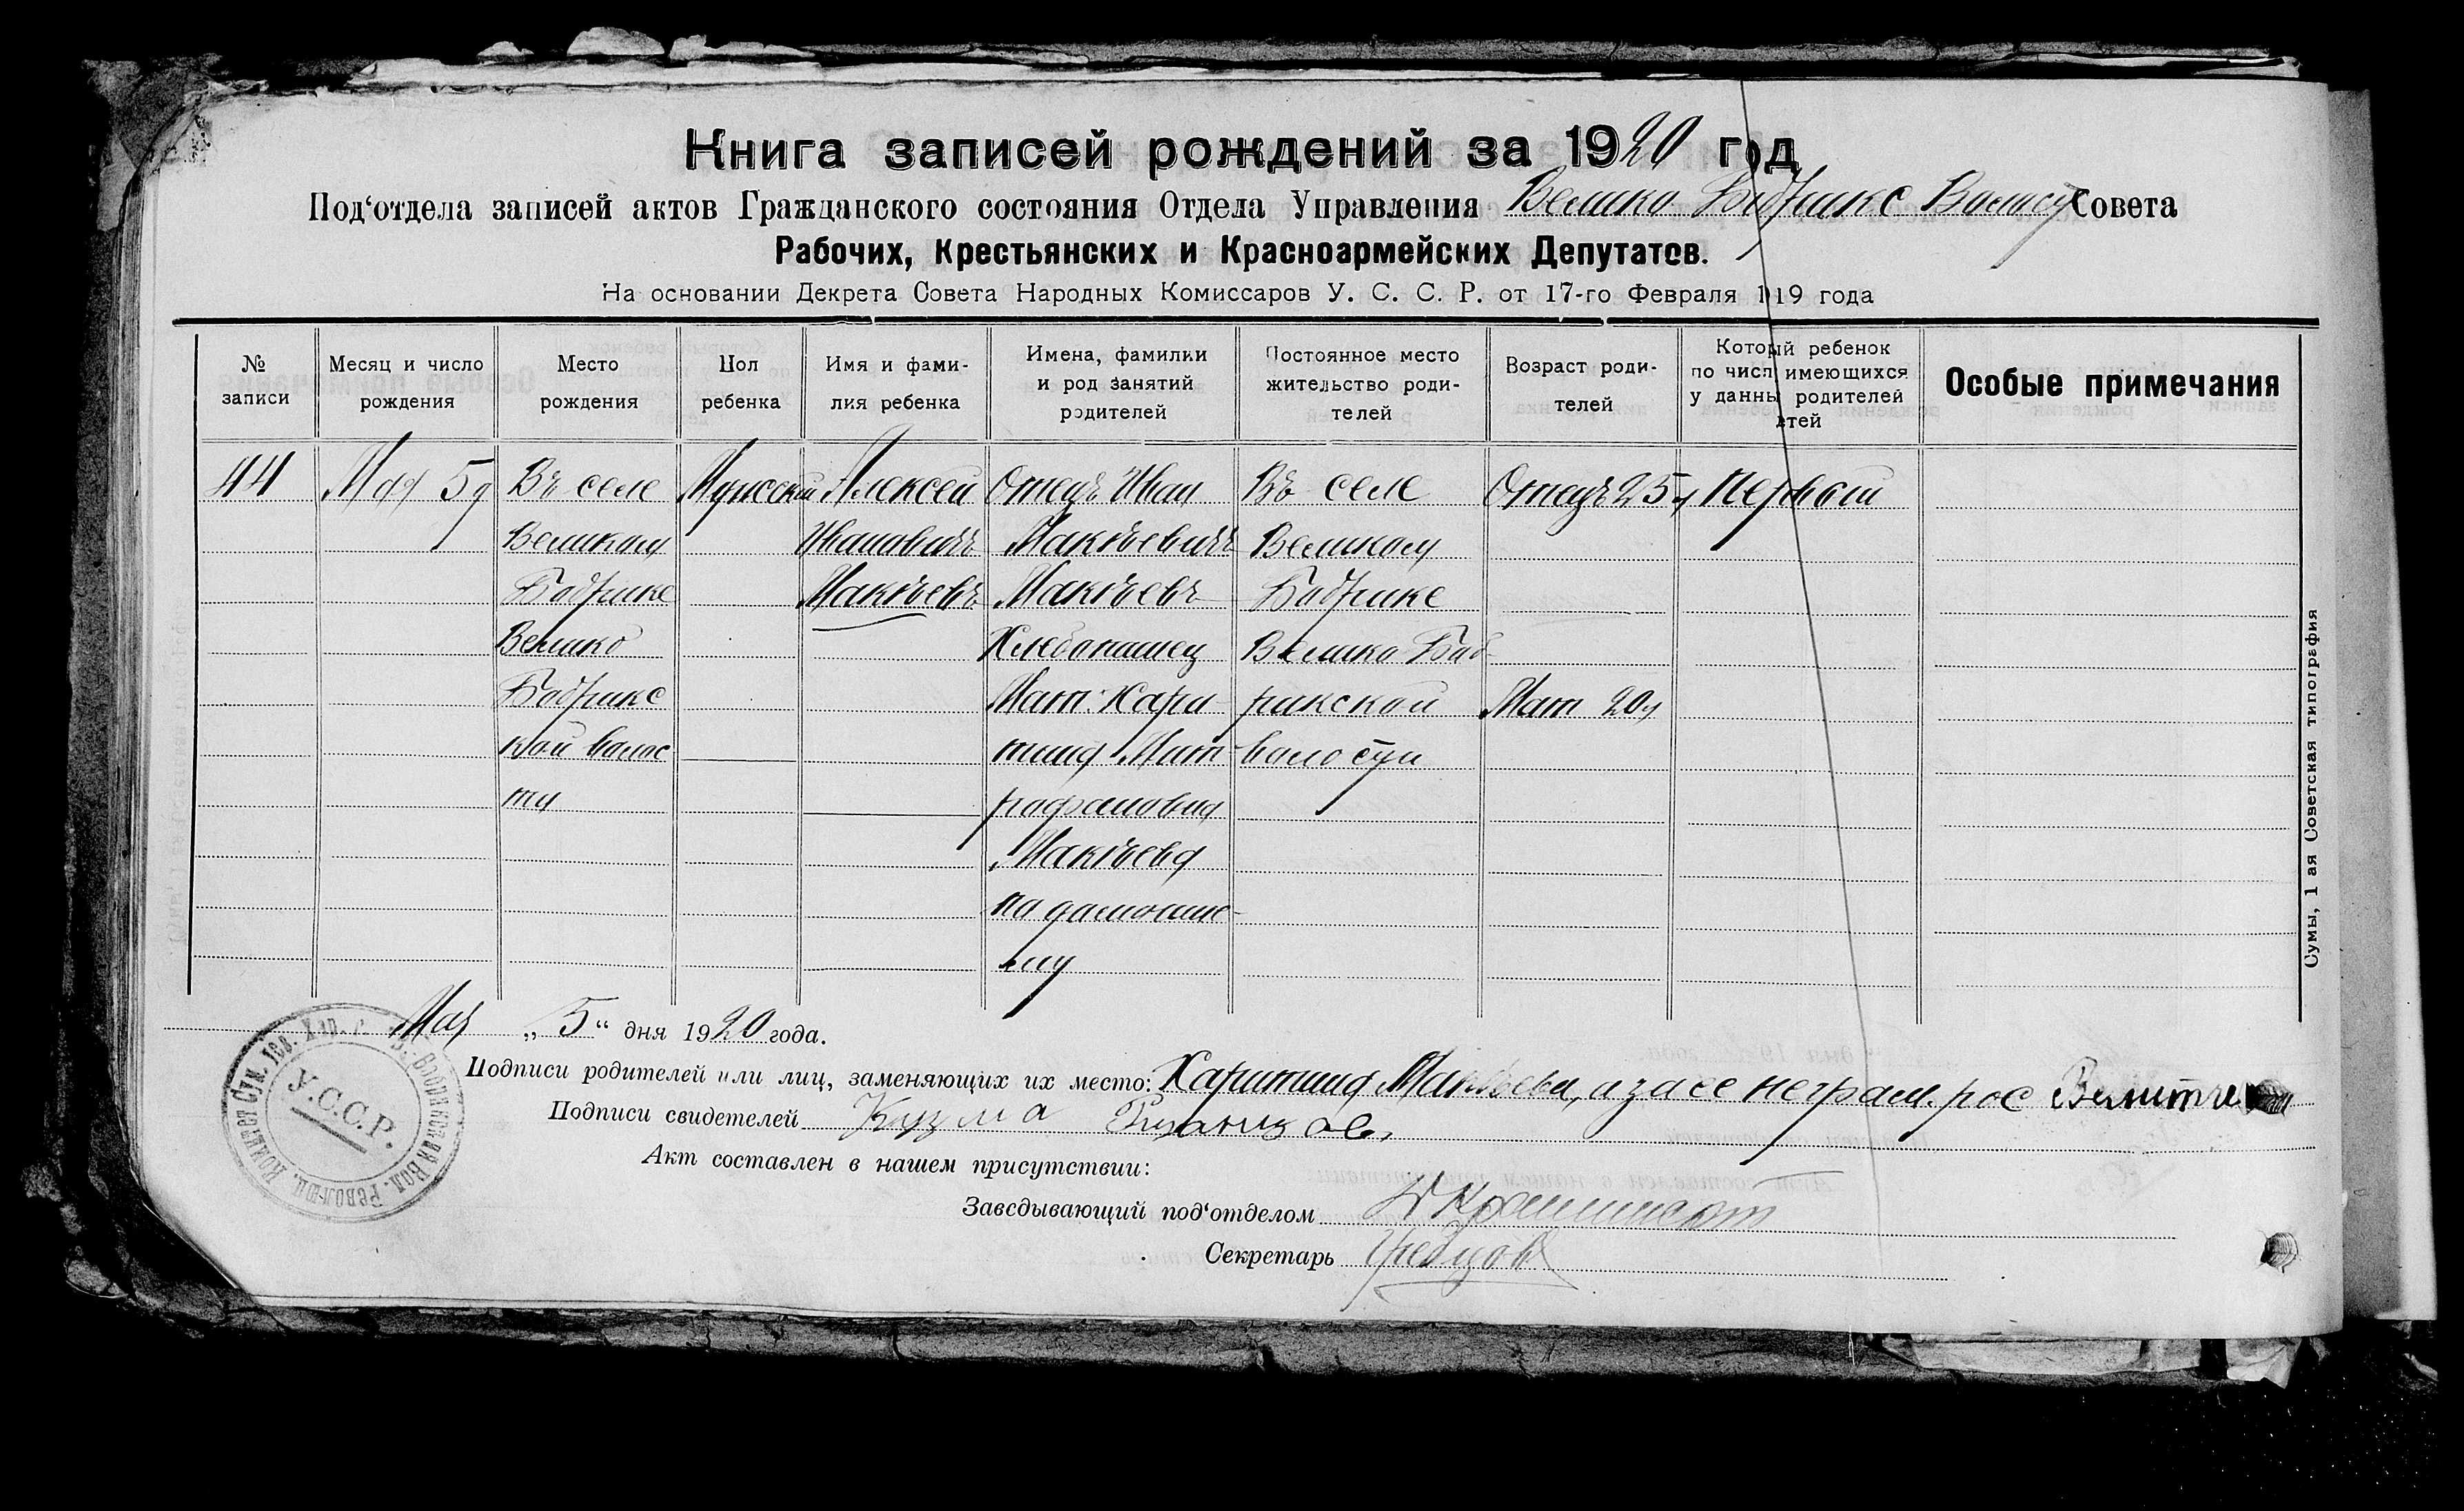 Книга записей рождений за 1920 год
Под‘отдела записей актов Гражданского состояния Отдела Управления Велико Бобрикс Волост Совета
Рабочих, Крестьянских и Красноармейских Депутатов.
На основании Декрета Совета Народных Комиссаров У. С. С. Р. от 17-го Февраля 1919 года
№ записи
Месяц и число рождения
Место рождения
Пол ребенка
Имя и фами-
лия ребенка
Имена, фамилии
и род занятий
родителей
Постоянное место
жительство роди-
телей
Возраст роди-
телей
Который ребенок
по числ имеющихся
у данны родителей
етей
Особые примечания
44
Мая 5д
Въ селе
Великом
Бобрике
Велико
Бобрикс
кой волос
ти
Мужской
Алексей
Ивановичъ
Макѣевъ
Отецъ Иван
Макѣевичъ
Макѣевъ
Хлебопашец
Мат. Хари
тина Мит
рофановна
Макѣева
по домашне-
му
Въ селе
Великом
Бобрике
Велико Боб-
рикской
волости
Отецъ 25 л
Мат 20 л
Первый
Мая „ 5 “ дня 1920 года.
Подписи родителей или лиц, заменяющих их место: Харитина Макѣева, а за се неграм. рос
Подписи свидетелей Кузма
Акт составлен в нашем присутствии:
Заведывающий под‘отделом
Секретарь
У.С.С.Р.
Сумы, 1 ая Советская типография